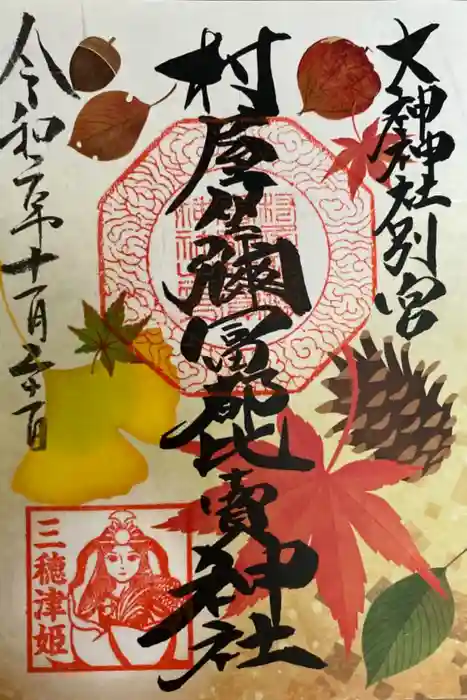 大神神社別宮
村屋坐彌冨都比賣神社
令和元年十一月二十一日
三穂津姫